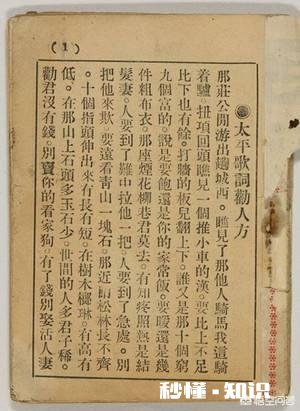 (1)
●太平歌詞勸人方
那莊公閒游出趟城西。瞧見了那他人騎馬我這騎
着驢。扭項回頭瞧見一個推小車的漢。要比上不足
比下也有餘。打牆的板兒翻上下。誰又是那十個窮
九個富的。說是要飽還是你的家常飯。要暖還是幾
件粗布衣。那座煙花柳巷君莫去。有知疼照熱是結
髮妻。人要到了難中拉他一把。人要到了急處。別
把他來欺。要遠看靑山一塊石。那近瞧松林長不齊
。十個指頭伸出來有長有短。在樹木榔琳。有高有
低。在那山上石頭多玉石少。世間的人多君子稀。
勸君沒有錢。別賣你的看家狗。有了錢別娶活人妻
秒懂·知识
悟空问答